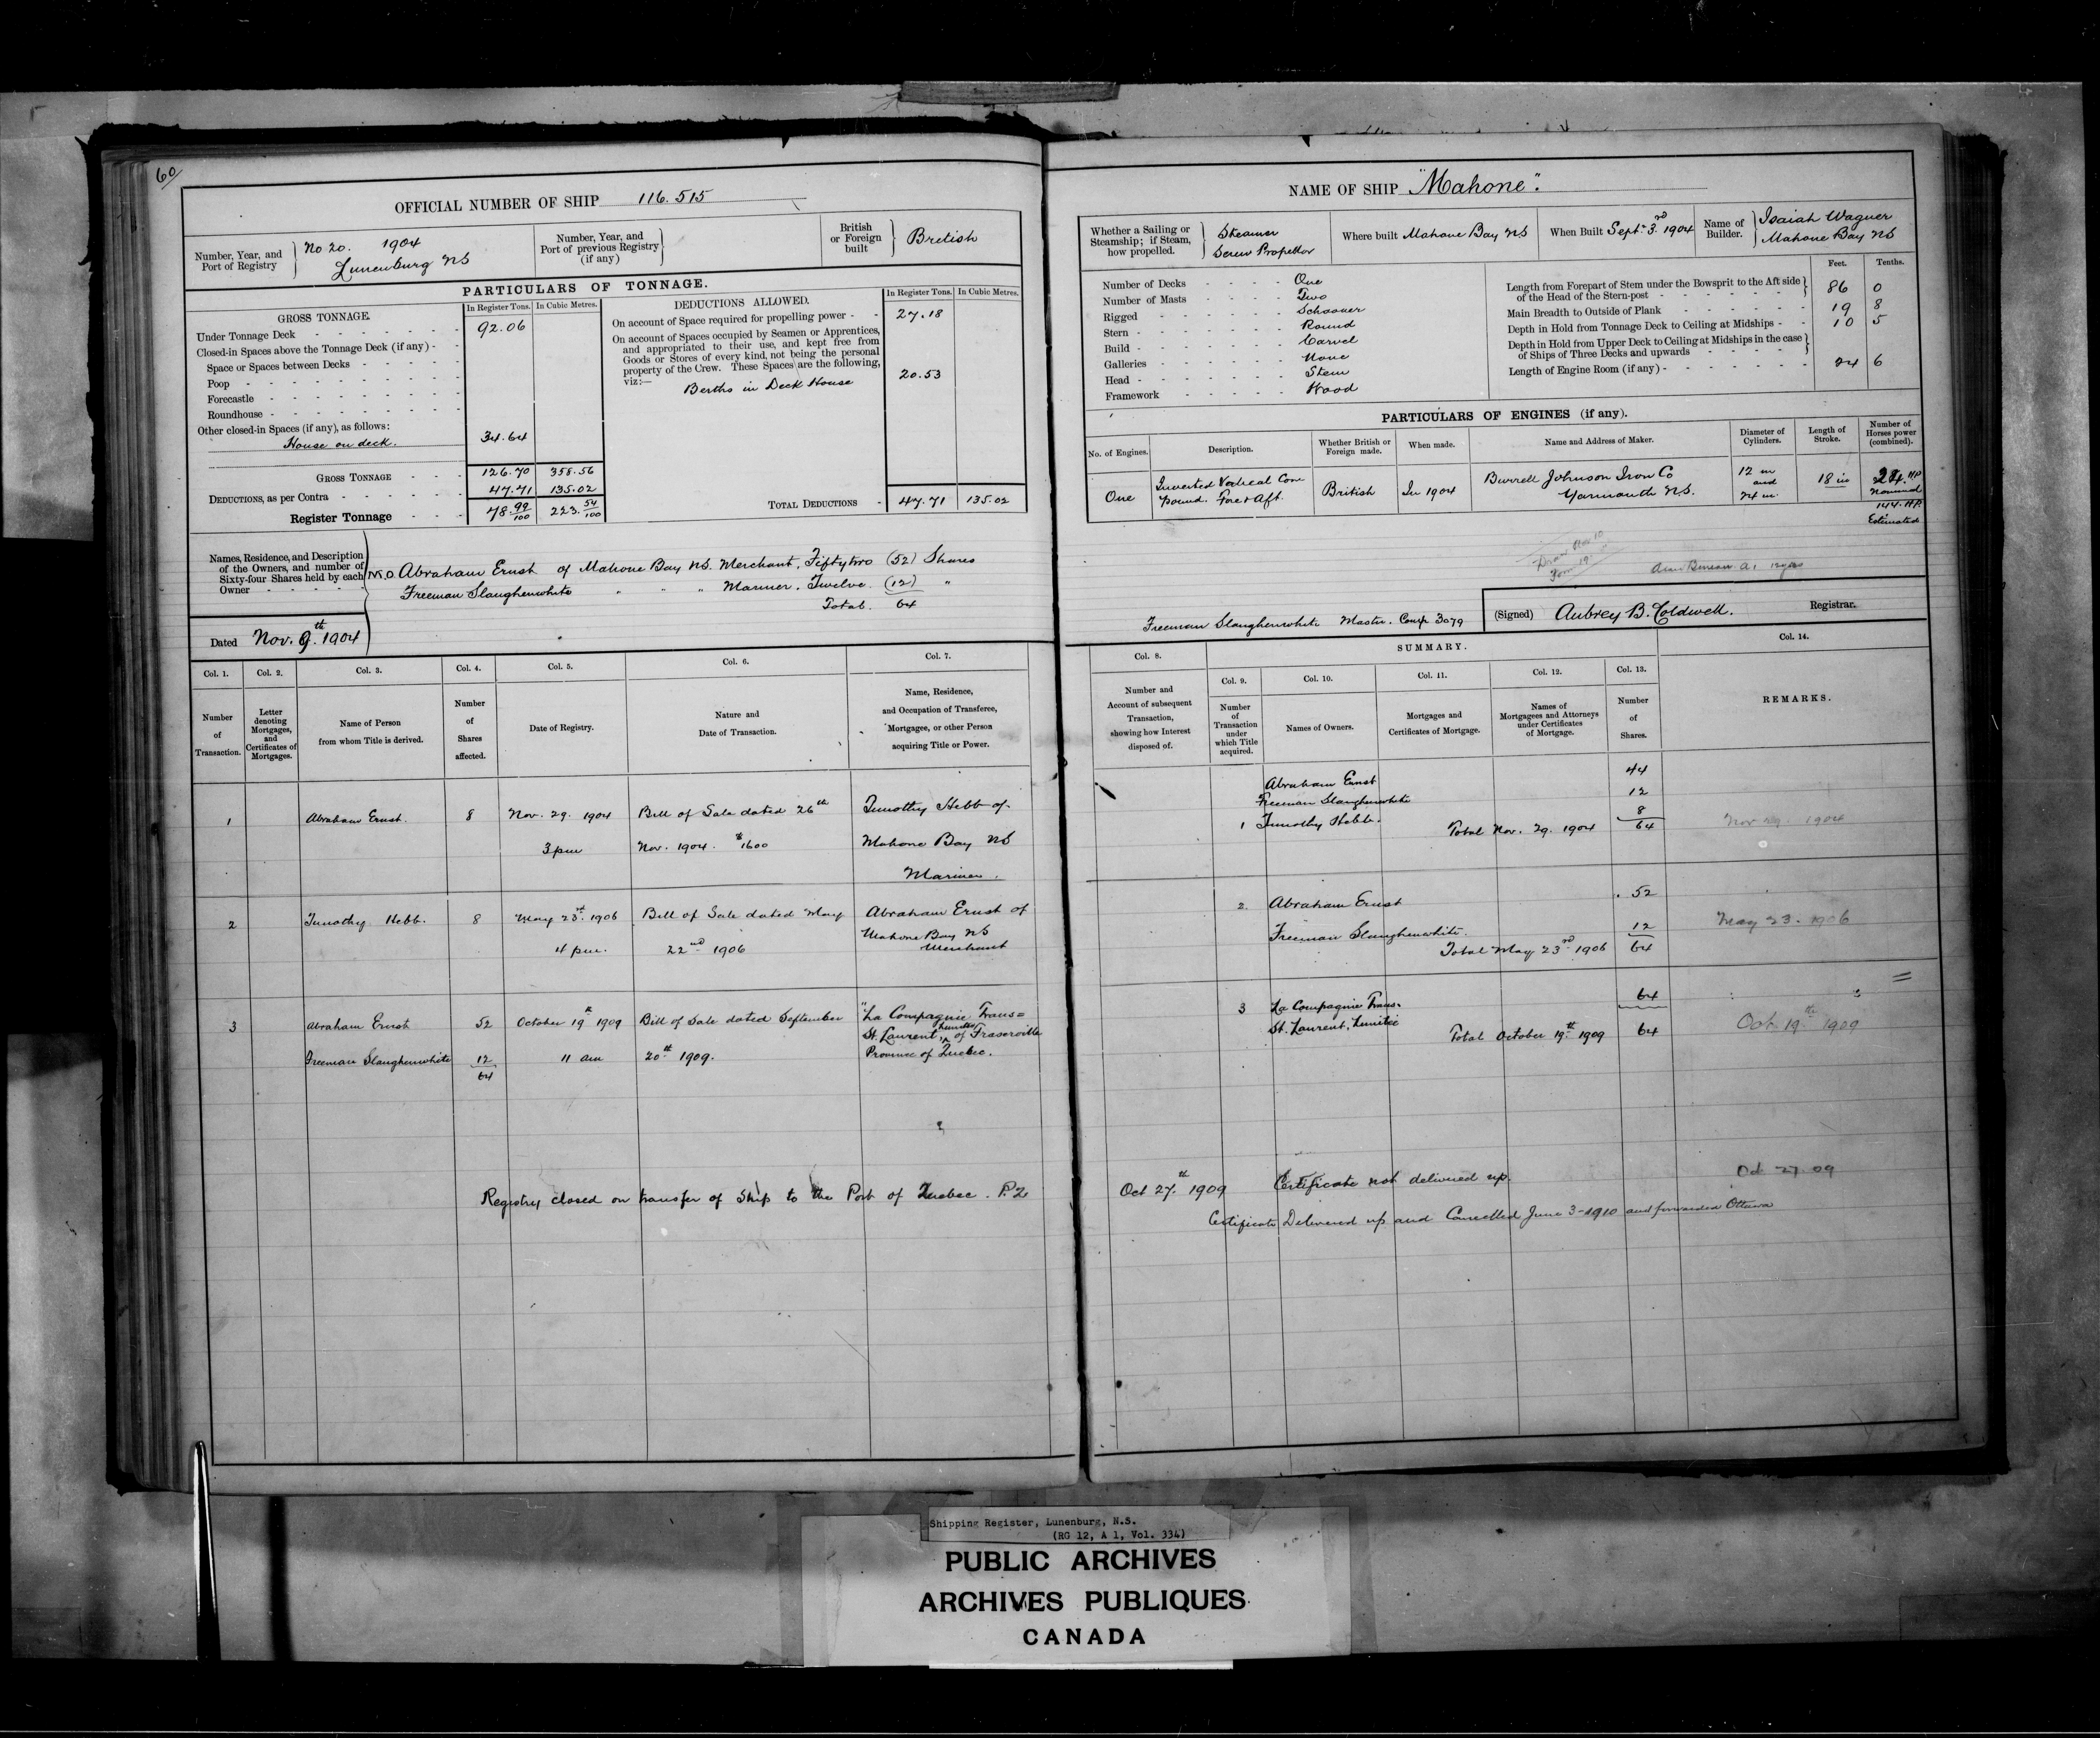 60
OFFICIAL NUMBER OF SHIP 116.515
Number, Year, and Port of Registry
No 20. 1904
Lunenburg NS
Number, Year, and Port of previous Registry (if any)
British or Foreign built
British
PARTICULARS OF TONNAGE.
GROSS TONNAGE.
In Register Tons. In Cubic Metres.
Under Tonnage Deck 92.06
Closed-in Spaces above the Tonnage Deck (if any)
Space or Spaces between Decks
Poop
Forecastle
Roundhouse
Other closed-in Spaces (if any), as follows:
House on deck. 34.64
GROSS TONNAGE 126.70 358.56
DEDUCTIONS, as per Contra 47.71 135.02
Register Tonnage 78.99/100 223.54/100
DEDUCTIONS ALLOWED.
In Register Tons. In Cubic Metres.
On account of Space required for propelling power 27.18
On account of Spaces occupied by Seamen or Apprentices, and appropriated to their use, and kept free from Goods or Stores of every kind, not being the personal property of the Crew. These Spaces are the following, viz:—
Berths in Deck House 20.53
TOTAL DEDUCTIONS 47.71 135.02
Names, Residence, and Description of the Owners, and number of Sixty-four Shares held by each Owner
M.O. Abraham Ernst of Mahone Bay NS. Merchant, Fiftytwo (52) Shares
Freeman Slaughenwhite " " " Mariner, Twelve (12) "
Total. 64
Dated Nov. 9th 1904
NAME OF SHIP "Mahone".
Whether a Sailing or Steamship; if Steam, how propelled.
Steamer
Screw Propellor
Where built Mahone Bay NS
When Built Sept. 3rd 1904
Name of Builder.
Isaiah Wagner
Mahone Bay NS
Number of Decks One
Number of Masts Two
Rigged Schooner
Stern Round
Build Carvel
Galleries None
Head Stem
Framework Wood
Feet. Tenths.
Length from Forepart of Stem under the Bowsprit to the Aft side of the Head of the Stern-post 86 0
Main Breadth to Outside of Plank 19 8
Depth in Hold from Tonnage Deck to Ceiling at Midships 10 5
Depth in Hold from Upper Deck to Ceiling at Midships in the case of Ships of Three Decks and upwards
Length of Engine Room (if any) 24 6
PARTICULARS OF ENGINES (if any).
No. of Engines. Description. Whether British or Foreign made. When made. Name and Address of Maker. Diameter of Cylinders. Length of Stroke. Number of Horses power (combined).
One
Inverted Vertical Com
pound. Fore & Aft.
British
In 1904
Burrell Johnson Iron Co
Yarmouth NS.
12 in
and
24 in.
18 in
24 HP
Nominal
144. HP.
Estimated
Freeman Slaughenwhite Master. Comp 3079
(Signed) Aubrey B. Coldwell. Registrar.
Col. 1. Col. 2. Col. 3. Col. 4. Col. 5. Col. 6. Col. 7.
Number of Transaction.
Letter denoting Mortgages, and Certificates of Mortgages.
Name of Person from whom Title is derived.
Number of Shares affected.
Date of Registry.
Nature and Date of Transaction.
Name, Residence, and Occupation of Transferee, Mortgagee, or other Person acquiring Title or Power.
Col. 8.
SUMMARY.
Col. 9. Col. 10. Col. 11. Col. 12. Col. 13. Col. 14.
Number and Account of subsequent Transaction, showing how Interest disposed of.
Number of Transaction under which Title acquired.
Names of Owners.
Mortgages and Certificates of Mortgage.
Names of Mortgagees and Attorneys under Certificates of Mortgage.
Number of Shares.
REMARKS.
1 Abraham Ernst. 8 Nov. 29. 1904 Bill of Sale dated 26th Timothy Hebb of
3 pm Nov. 1904. $1600 Mahone Bay NS
Mariner.
Abraham Ernst 44
Freeman Slaughenwhite 12
1 Timothy Hebb. 8
Total Nov. 29. 1904 64
Nov 29. 1904
2 Timothy Hebb. 8 May 23rd 1906 Bill of Sale dated May Abraham Ernst of
4 pm. 22nd 1906 Mahone Bay NS
Merchant
2. Abraham Ernst 52
Freeman Slaughenwhite. 12
Total May 23rd 1906 64
May 23. 1906
3 Abraham Ernst 52 October 19th 1909 Bill of Sale dated September "La Compagnie Trans=
St. Laurent, Limitee of Fraserville
Freeman Slaughenwhite 12 11 am 20th 1909. Province of Quebec.
64
3 La Compagnie Trans- 64
St. Laurent, Limitée
Total October 19th 1909 64
Oct 19th 1909
Registry closed on transfer of Ship to the Port of Quebec. P.2
Oct 27th 1909 Certificate not delivered up.
Oct 27.09
Certificate Delivered up and Cancelled June 3-1910 and forwarded Ottawa
Shipping Register, Lunenburg, N.S.
(RG 12, A 1, Vol. 334)
PUBLIC ARCHIVES
ARCHIVES PUBLIQUES
CANADA